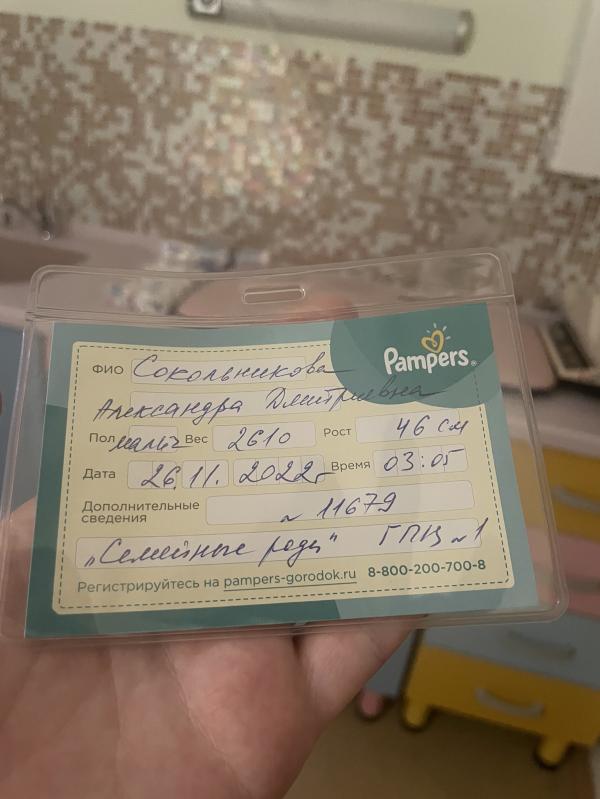 Pampers®
ФИО Сокольникова
Александра Дмитриевна
Пол мальч Вес 2610 Рост 46 см
Дата 26.11.2022г Время 03:05
Дополнительные
сведения
№ 11679
„Семейные роды" ГПЦ №1
Регистрируйтесь на pampers-gorodok.ru 8-800-200-700-8